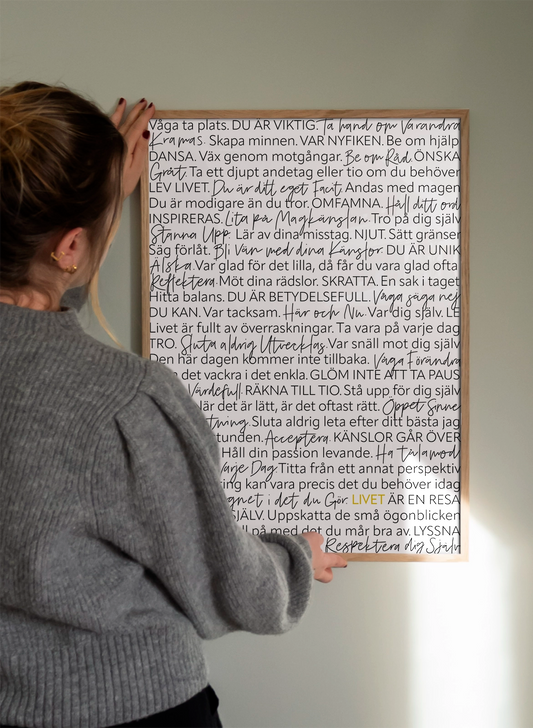 Våga ta plats. DU ÄR VIKTIG. Ta hand om Varandra
Kramas. Skapa minnen. VAR NYFIKEN. Be om hjälp
DANSA. Väx genom motgångar. Be om Råd. ÖNSKA
Gråt. Ta ett djupt andetag eller tio om du behöver
LEV LIVET. Du är ditt eget Facit. Andas med magen
Du är modigare än du tror. OMFAMNA. Håll ditt ord
INSPIRERAS. Lita på Magkänslan. Tro på dig själv
Stanna Upp. Lär av dina misstag. NJUT. Sätt gränser
Säg förlåt. Bli Vän med dina Känslor. DU ÄR UNIK
Älska. Var glad för det lilla, då får du vara glad ofta
Reflektera. Möt dina rädslor. SKRATTA. En sak i taget
Hitta balans. DU ÄR BETYDELSEFULL. Våga säga nej
DU KAN. Var tacksam. Här och Nu. Var dig själv. LE
Livet är fullt av överraskningar. Ta vara på varje dag
TRO. Sluta aldrig Utvecklas. Var snäll mot dig själv
Den här dagen kommer inte tillbaka. Våga Förändra
det vackra i det enkla. GLÖM INTE ATT TA PAUS
Värdefull. RÄKNA TILL TIO. Stå upp för dig själv
lär det är lätt, är det oftast rätt. Öppet Sinne
tning. Sluta aldrig leta efter ditt bästa jag
tunden. Acceptera. KÄNSLOR GÅR ÖVER
Håll din passion levande. Ha tålamod
Varje Dag. Titta från ett annat perspektiv
ring kan vara precis det du behöver idag
gnet i det du Gör. LIVET ÄR EN RESA
SJÄLV. Uppskatta de små ögonblicken
ll på med det du mår bra av. LYSSNA
Respektera dig Själv